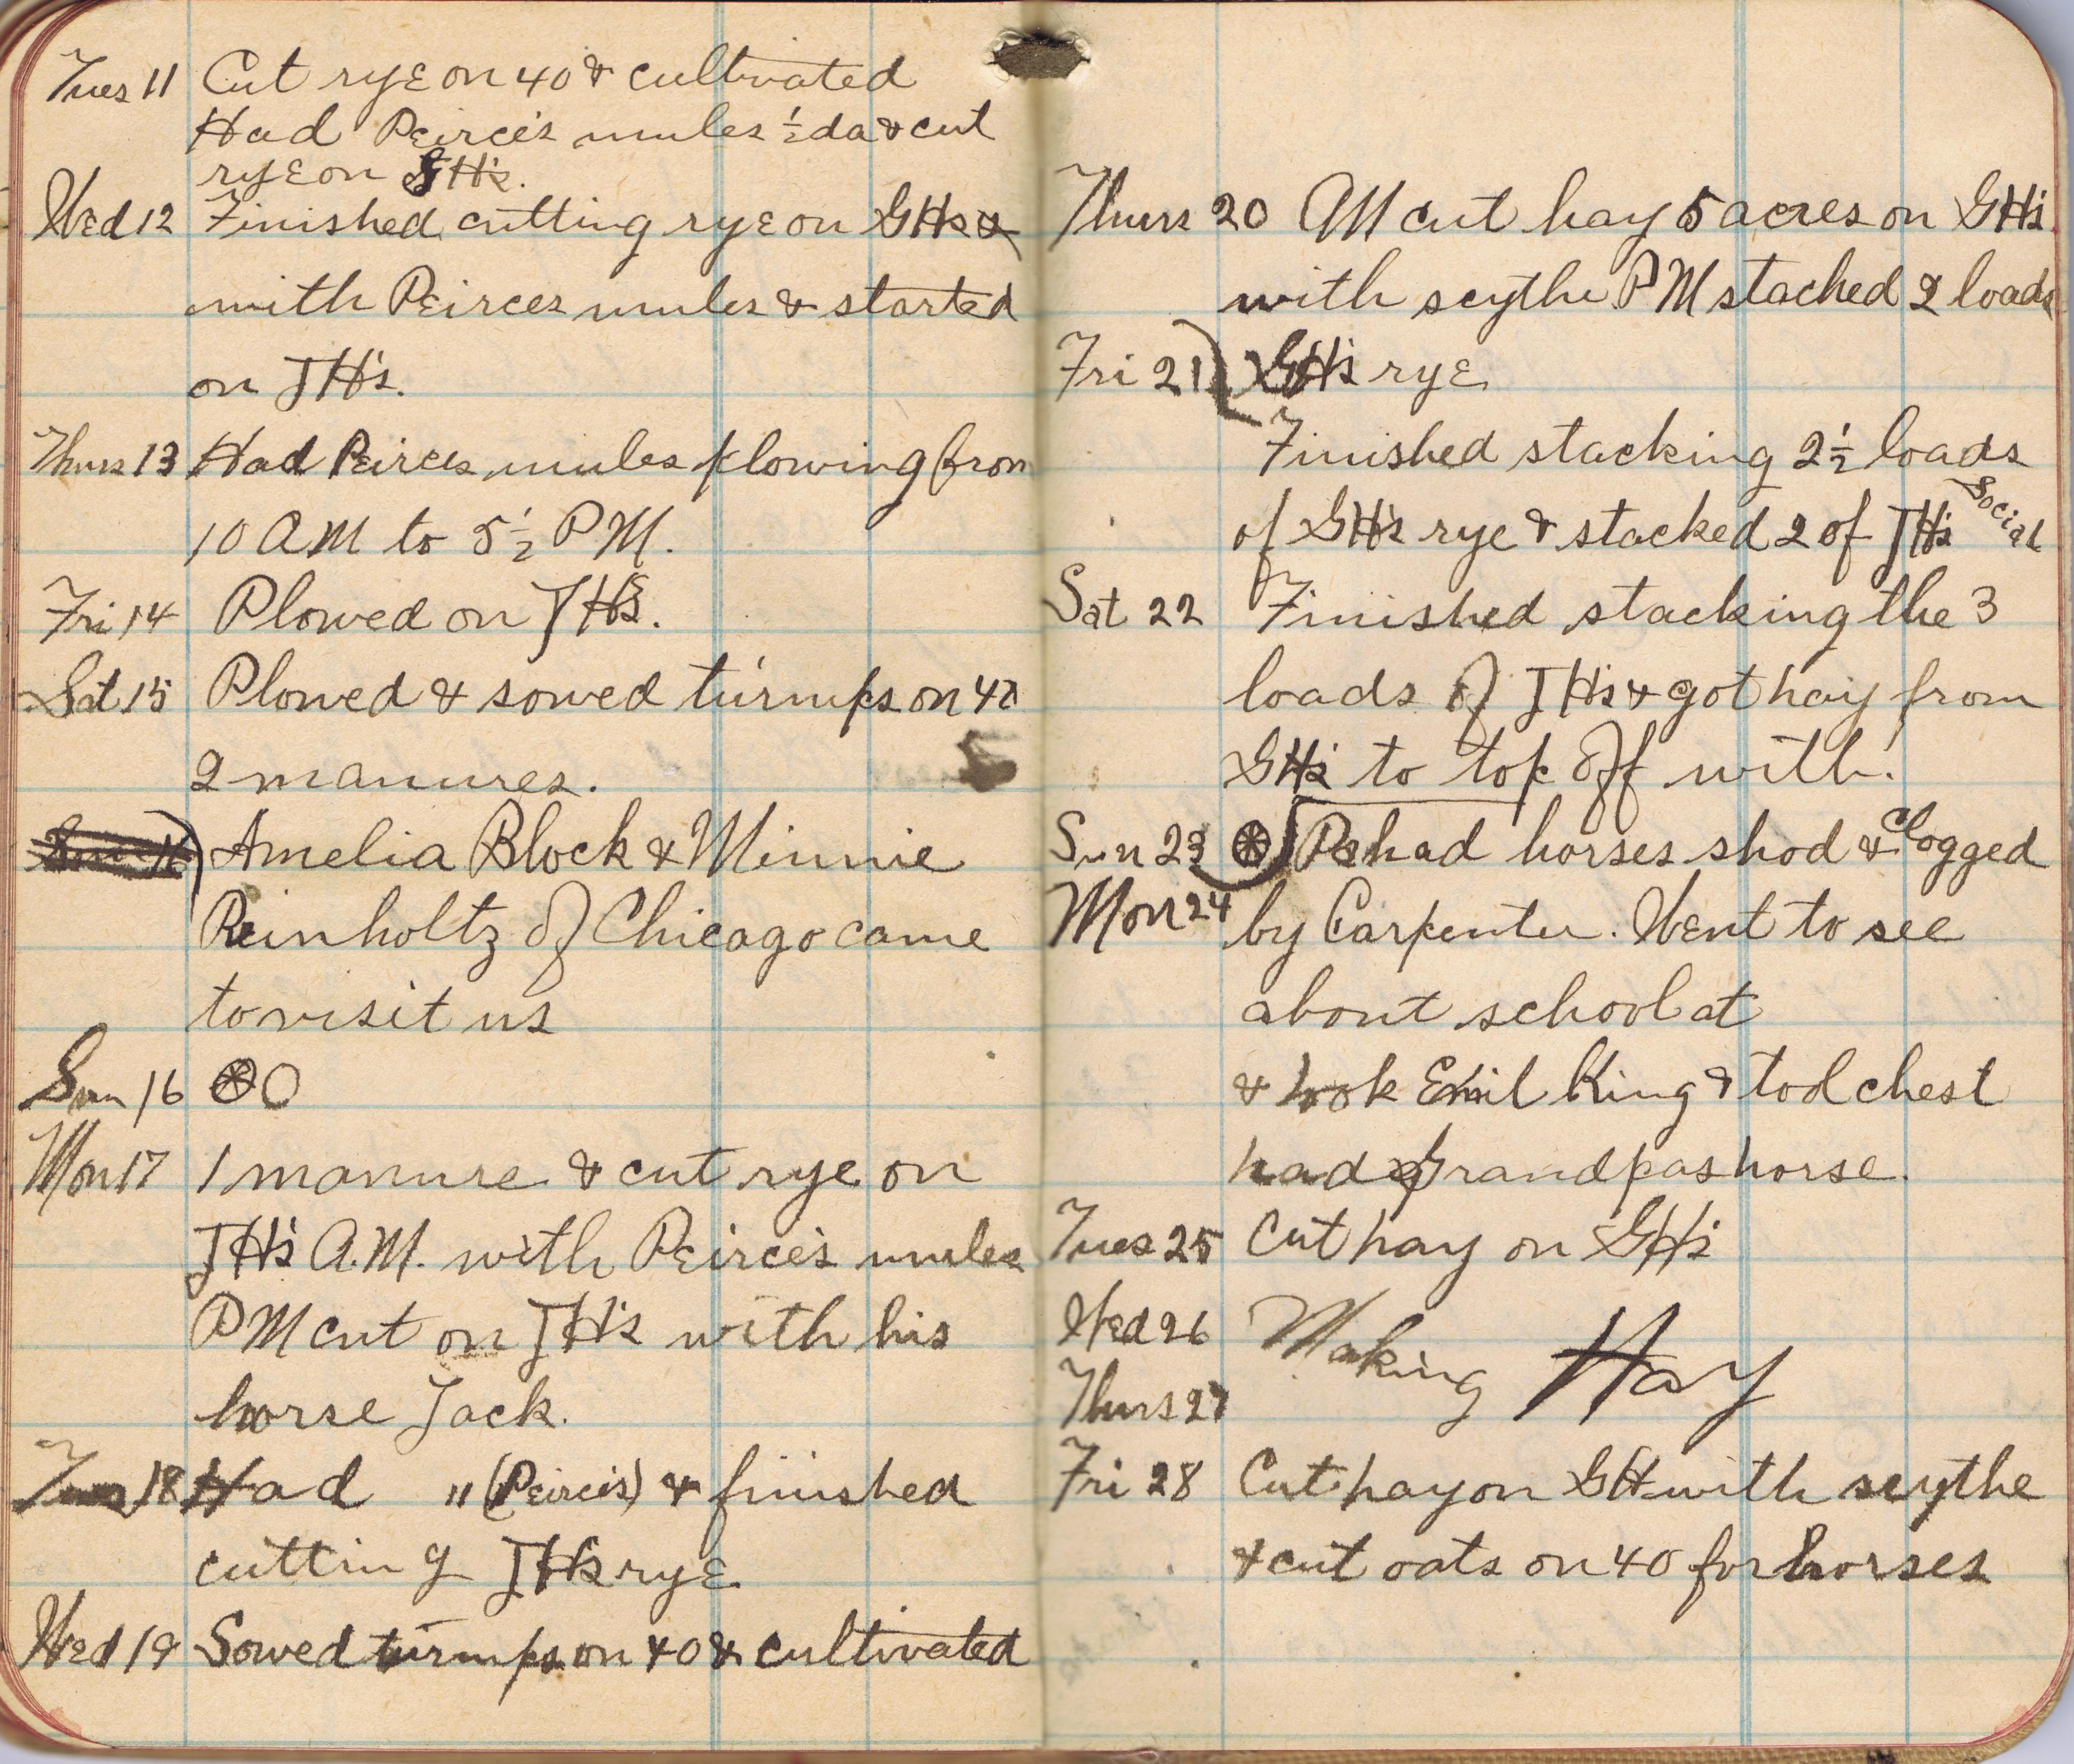 Tues 11 Cut rye on 40 & cultivated
Had Peirce's mules ½ da & cut
rye on GH's.
Wed 12 Finished cutting rye on GHs &
with Peirces mules & started
on JH's.
Thurs 13 Had Peirces mules plowing from
10 AM to 5½ PM.
Fri 14 Plowed on JH's.
Sat 15 Plowed & sowed turnips on 40
2 manures.
Sun 16 Amelia Block & Minnie
Reinholtz of Chicago came
to visit us
Sun 16
Mon 17 1 manure & cut rye on
JH's A.M. with Peirce's mules
PM cut on JH's with his
horse Jack.
Tues 18 Had " (Peirce's) & finished
cutting JH's rye
Wed 19 Sowed turnips on 40 & cultivated
Thurs 20 AM cut hay 5 acres on GH's
with scythe PM stacked 2 loads
Fri 21 GH's rye
Finished stacking 2½ loads
of GH's rye & stacked 2 of JH's Social
Sat 22 Finished stacking the 3
loads of JH's & got hay from
GH's to top off with.
Sun 23 Pa had horses shod & Clogged
Mon 24 by Carpenter. Went to see
about school at
& took Emil King & tool chest
had Grandpas horse.
Tues 25 Cut hay on GH's
Wed 26 Making Hay
Thurs 27
Fri 28 Cut hay on GH with scythe
& cut oats on 40 for horses